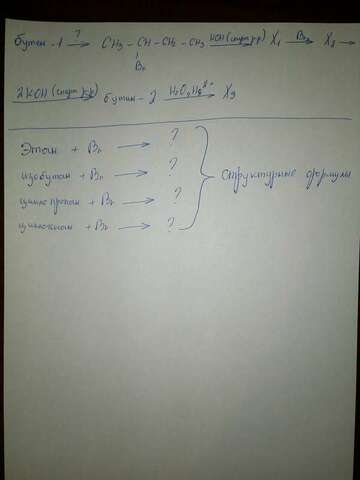 бутен-1 ?→ CH3-CH-CH2-CH3 KOH(спирт. р-р)→ X1 Br2→ X2 →
Br
2KOH(спирт р-р)→ бутин-2 H2O, Hg2+→ X3
Этан + Br2 → ?
изобутан + Br2 → ?
циклопропан + Br2 → ?
+ Br2 → ?
структурные формулы